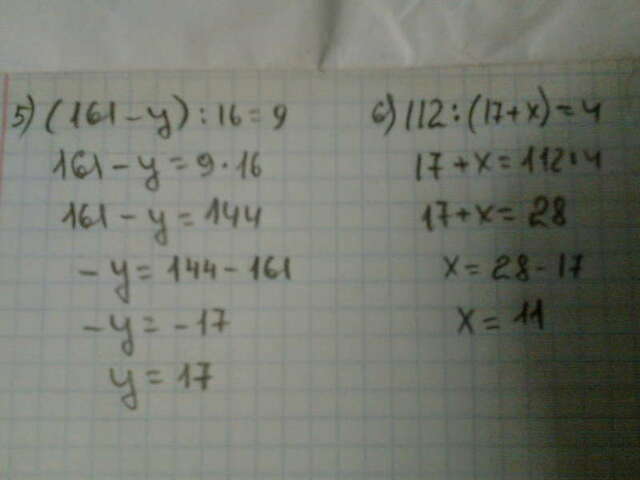 5) (161-y):16=9
161-y=9·16
161-y=144
-y=144-161
-y=-17
y=17
6) 112:(17+x)=4
17+x=112:4
17+x=28
x=28-17
x=11